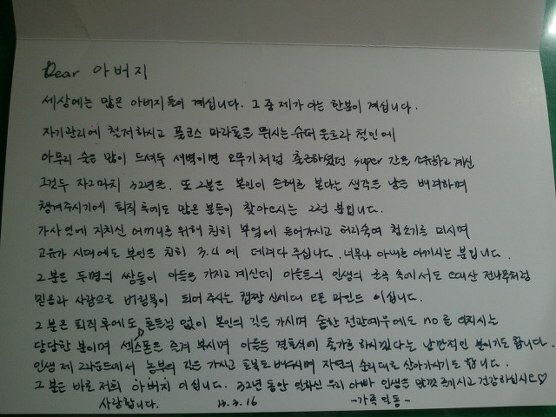 Dear 아버지
세상에는 많은 아버지들이 계십니다. 그 중 제가 아는 한분이 계십니다.
자기관리에 철저하시고 풀코스 마라톤을 뛰시는 슈퍼 울트라 철인에
아무리 술을 많이 드셔두 새벽이면 오뚜기처럼 출근하셨던 super 간을 소유하고 계신
그것두 자그마치 32년은. 또 그분은 본인이 손해를 본다는 생각은 남을 배려하며
챙겨주시기에 퇴직 후에도 많은 분들이 찾아오시는 그런 분입니다.
가사일에 지치신 어머니를 위해 친히 부엌에 들어가시고 허리숙여 청소기를 미시며
고유가 시대에도 부인은 친히 3.4 에 데려다 주십니다. 너무나 아내를 아끼시는 분입니다.
그 분은 두명의 쌍둥이 아들을 가지고 계신데 아들들의 인생의 속에서도
믿음과 사랑으로 버팀목이 되어 주시는 캡짱 신세대 오픈 마인드 이십니다.
그 분은 퇴직 후에도 흔들림 없이 본인의 길은 가시며 술한 전관예우에도 no를 외치시는
당당한 분이며 섹스폰은 즐겨 부시며 아들은 결혼식이 축가를 하시겠다는 낭만적인 분이기도 합니다.
인생 제 2라운드에서 농부의 길은 가시고 배우시며 자연의 순리대로 살아가시기도 합니다.
그 분은 바로 저희 아버지 이십니다. 32년 동안 우리 아빠 인생을 맘껏 즐기시고 건강하십시오♡
사랑합니다. 13.3.16 -가족 일동-